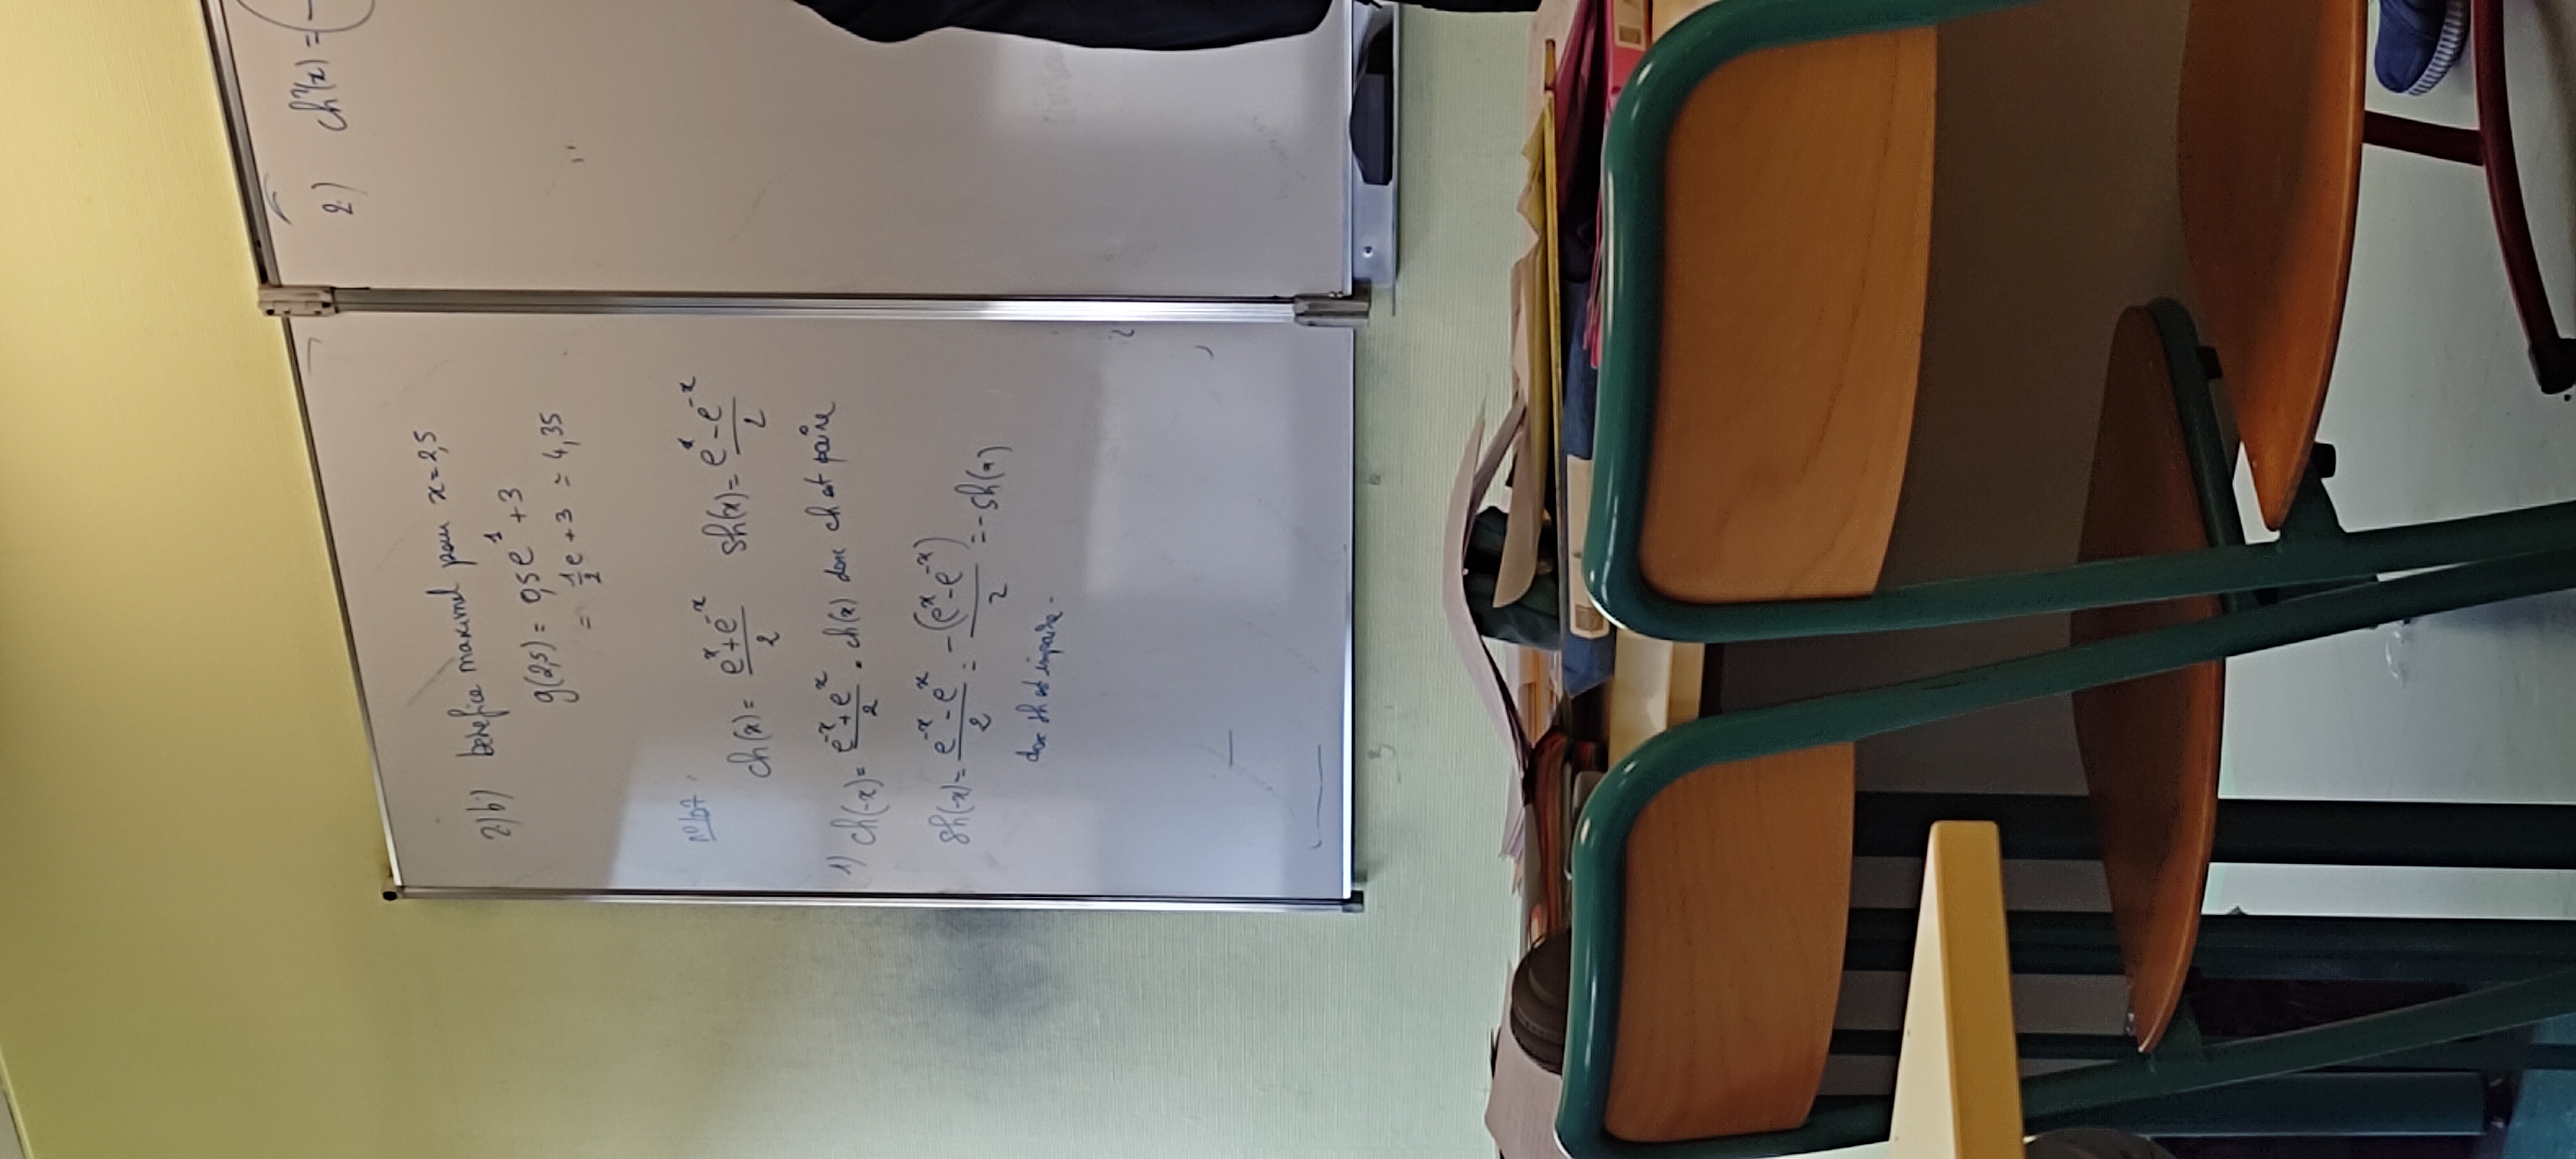 2)b) bénéfice maximal pour x=2,5
g(2,5) = 0,5e¹ + 3
= ½e + 3 ≃ 4,35
n°107
ch(x) = (eˣ+e⁻ˣ)/2 sh(x) = (eˣ-e⁻ˣ)/2
1) ch(-x) = (e⁻ˣ+eˣ)/2 = ch(x) donc ch est paire
sh(-x) = (e⁻ˣ-eˣ)/2 = -(eˣ-e⁻ˣ)/2 = -sh(x)
donc sh est impaire.
2) ch²(x) = (